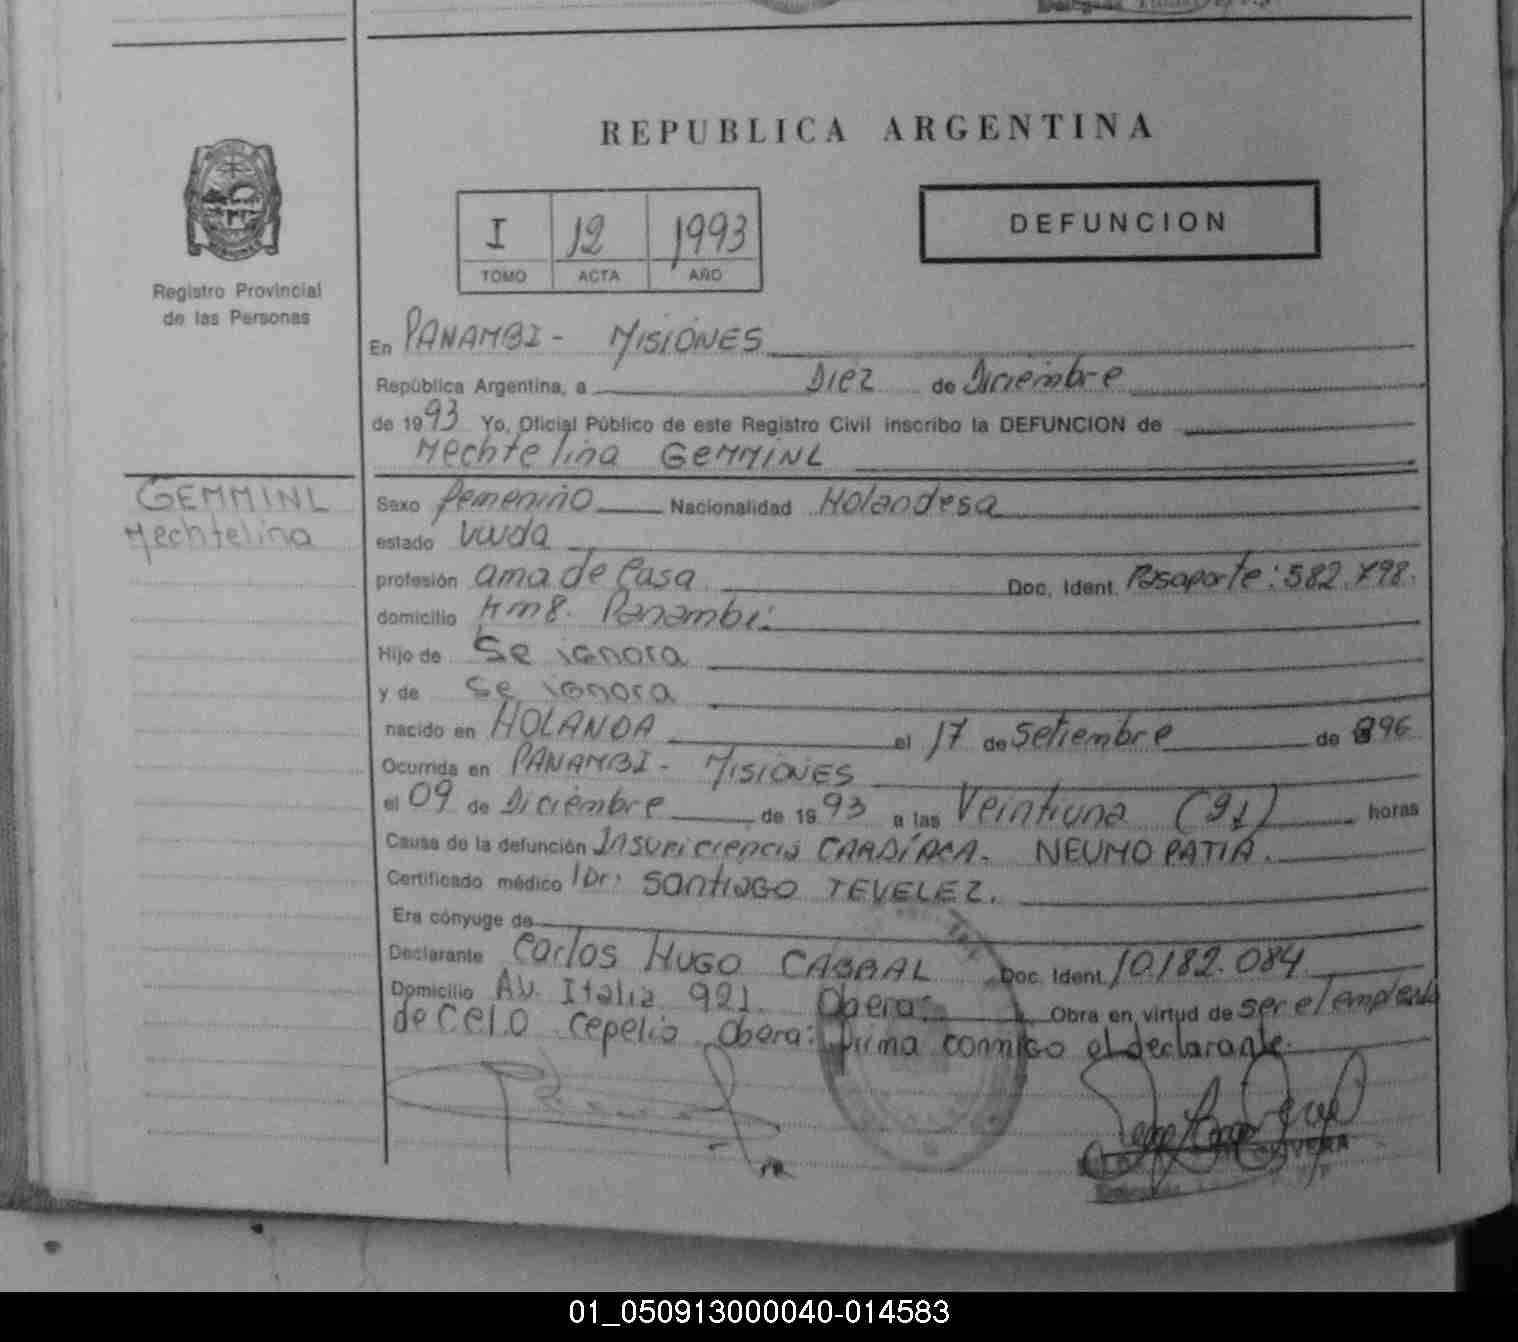 REPUBLICA ARGENTINA
I 12 1993
TOMO ACTA AÑO
DEFUNCION
Registro Provincial
de las Personas
En PANAMBI - MISIONES
República Argentina, a Diez de Diciembre
de 1993 Yo, Oficial Público de este Registro Civil inscribo la DEFUNCION de
Mechtelina GEMMINL
GEMMINL
Mechtelina
Sexo femenino Nacionalidad Holandesa
estado viuda
profesión ama de Casa Doc. Ident. Pasaporte: 582.798.
domicilio Km 8. Panambi.
Hijo de Se ignora
y de Se ignora
nacido en HOLANDA el 17 de Setiembre de 896
Ocurrida en PANAMBI - MISIONES
el 09 de Diciembre de 1993 a las Veintiuna (21) horas
Causa de la defunción Insuficiencia CARDÍACA. NEUMOPATIA.
Certificado médico Dr: SANTIAGO TEVELEZ.
Era cónyuge de
Declarante Carlos HUGO CABRAL Doc. Ident. 10.182.084
Domicilio Av. Italia 921 Obera: Obra en virtud de ser el empleado
de CELO Sepelio Obera: firma conmigo el declarante.
01_050913000040-014583